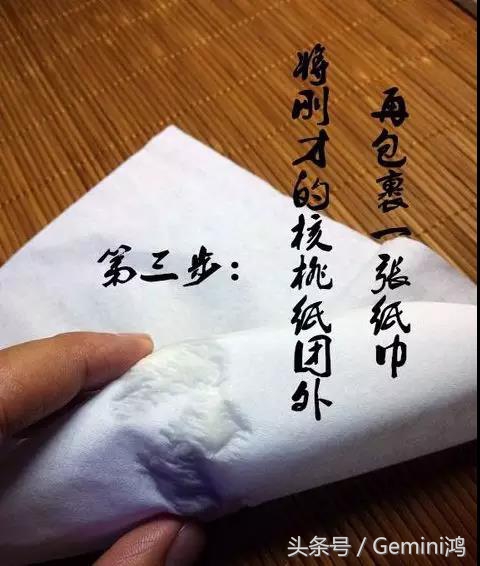 第三步：
将刚才的核桃纸团外
再包裹一张纸巾
头条号 / Gemini鸿